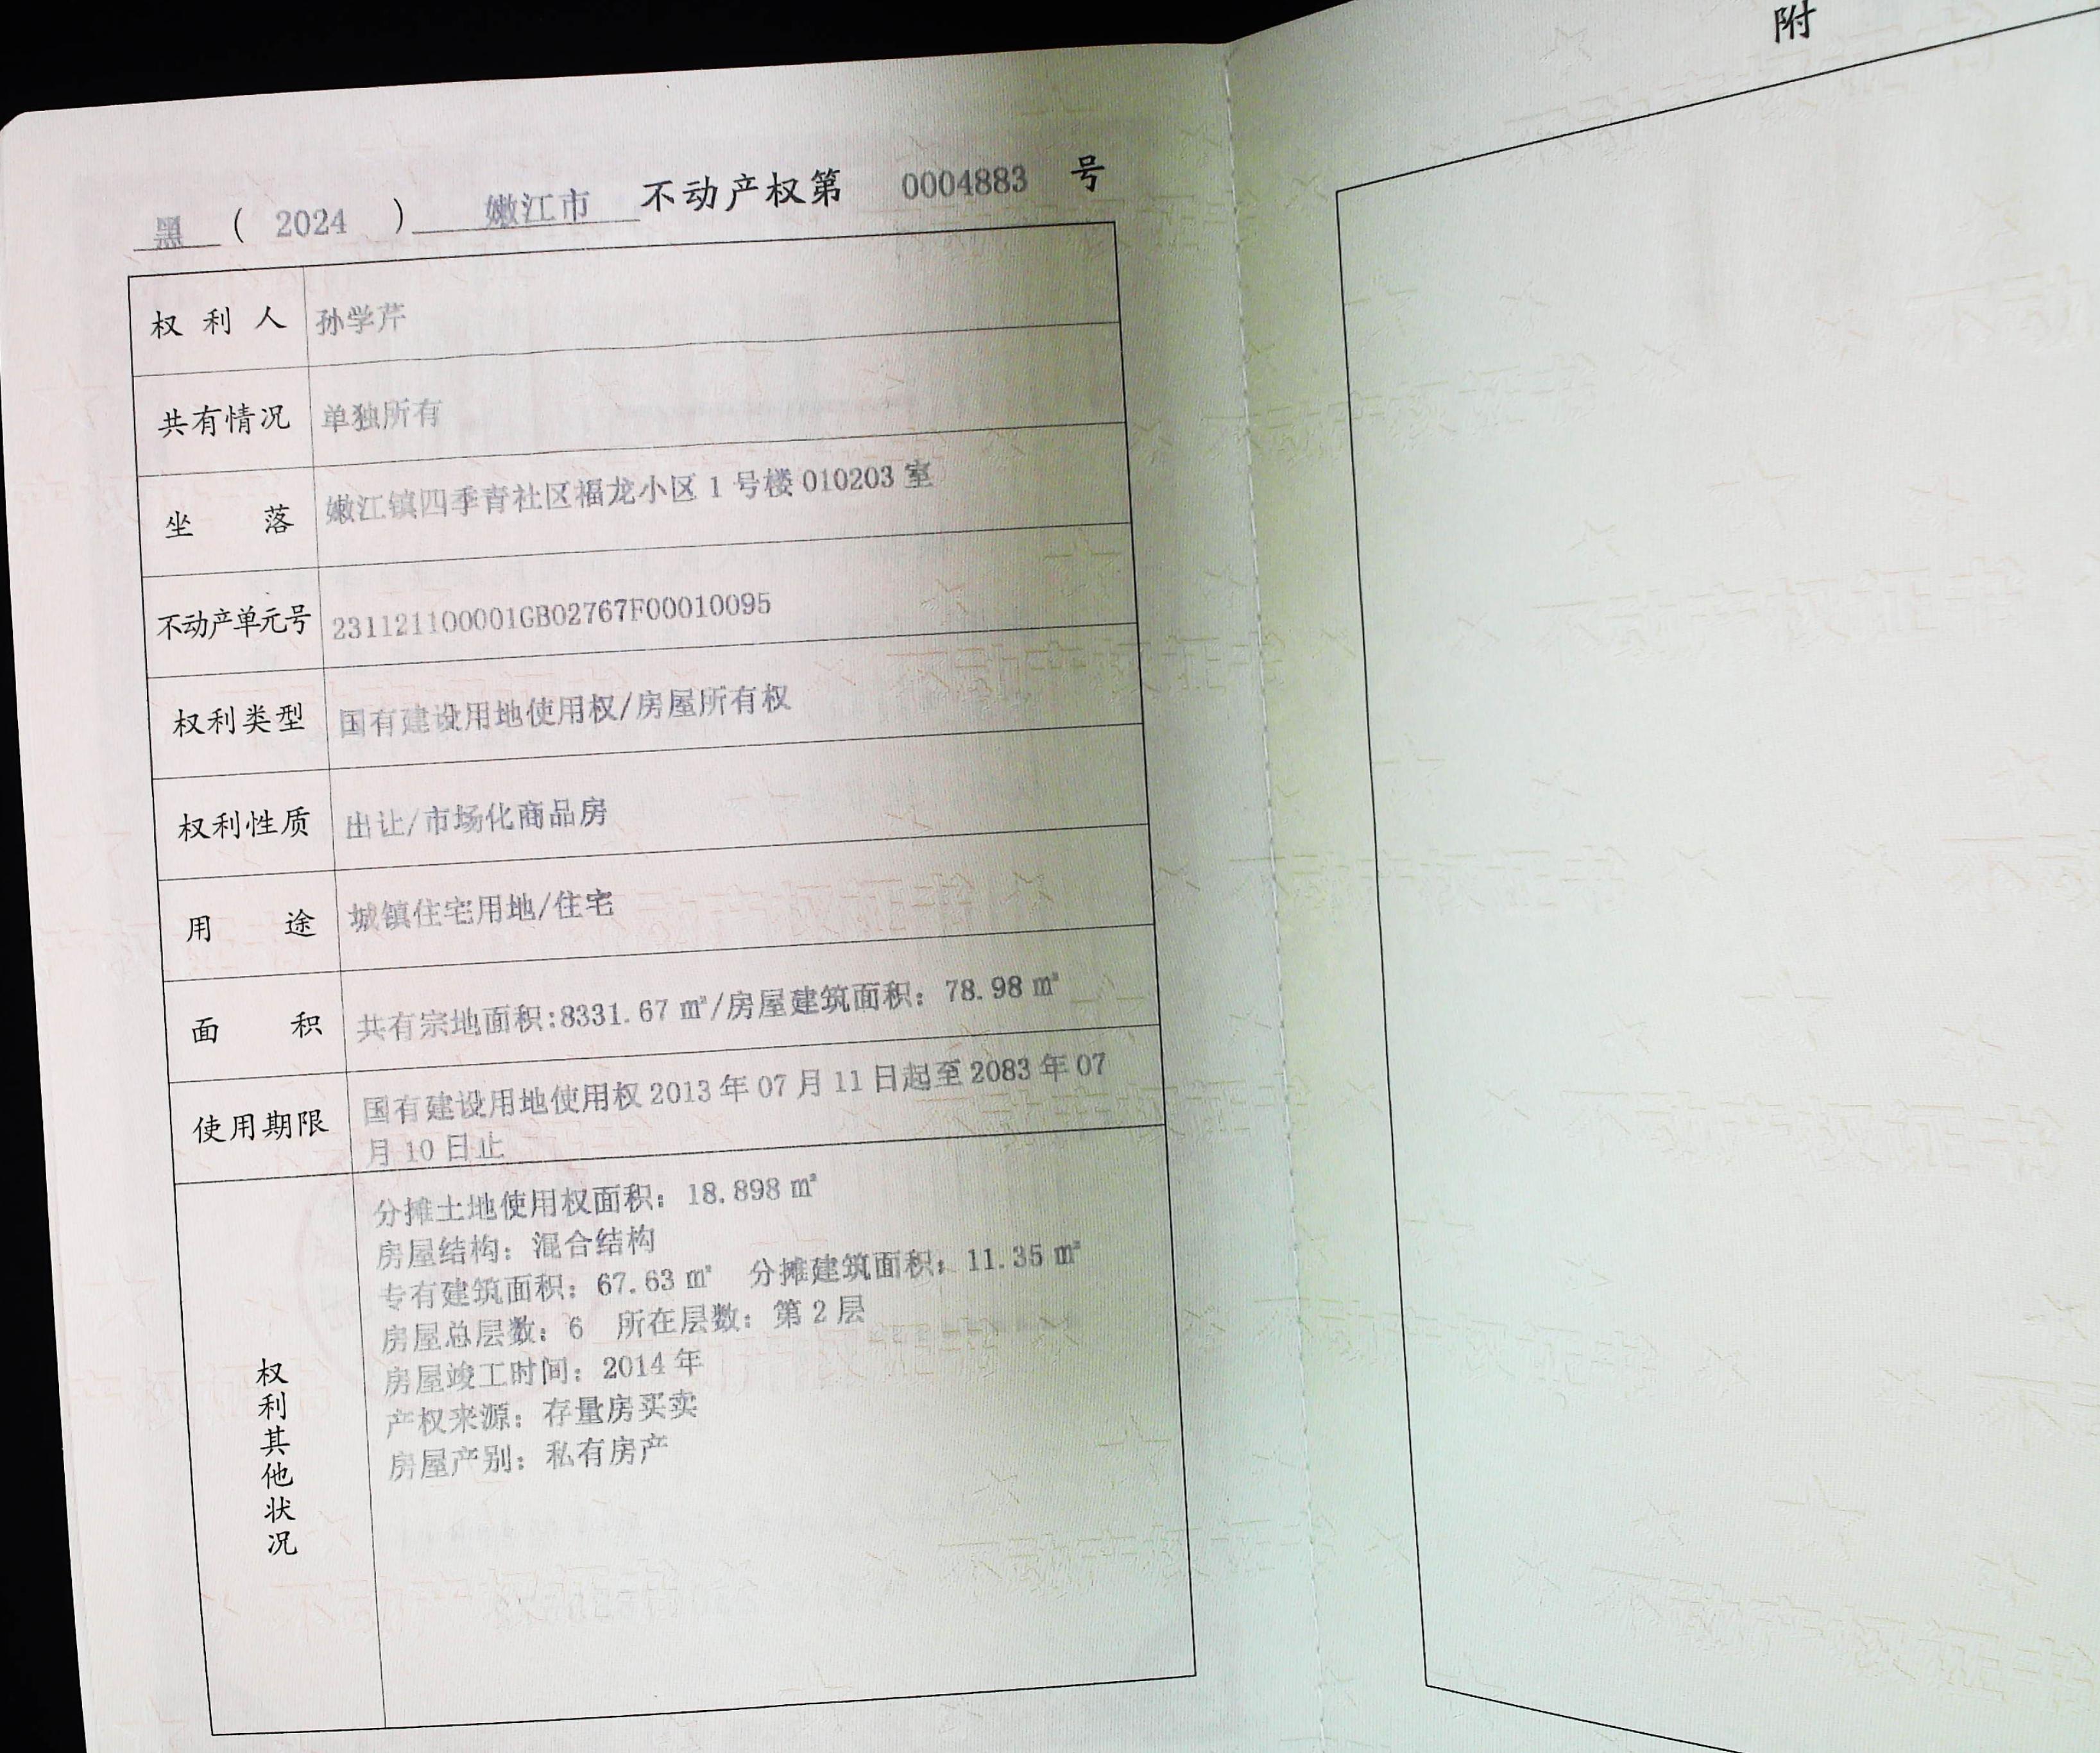 黑 ( 2024 ) 嫩江市 不动产权第 0004883 号
附
权利人 孙学芹
共有情况 单独所有
坐落 嫩江镇四季青社区福龙小区 1 号楼 010203 室
不动产单元号 231121100001GB02767F00010095
权利类型 国有建设用地使用权/房屋所有权
权利性质 出让/市场化商品房
用途 城镇住宅用地/住宅
面积 共有宗地面积:8331.67 ㎡/房屋建筑面积：78.98 ㎡
使用期限 国有建设用地使用权 2013 年 07 月 11 日起至 2083 年 07
月 10 日止
权利其他状况
分摊土地使用权面积：18.898 ㎡
房屋结构：混合结构
专有建筑面积：67.63 ㎡ 分摊建筑面积：11.35 ㎡
房屋总层数：6 所在层数：第 2 层
房屋竣工时间：2014 年
产权来源：存量房买卖
房屋产别：私有房产